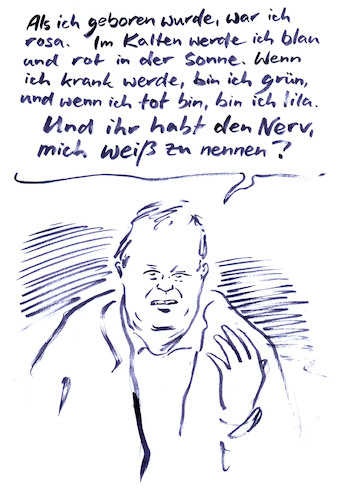 Als ich geboren wurde, war ich
rosa. Im Kalten werde ich blau
und rot in der Sonne. Wenn
ich krank werde, bin ich grün,
und wenn ich tot bin, bin ich lila.
Und ihr habt den Nerv,
mich weiß zu nennen?